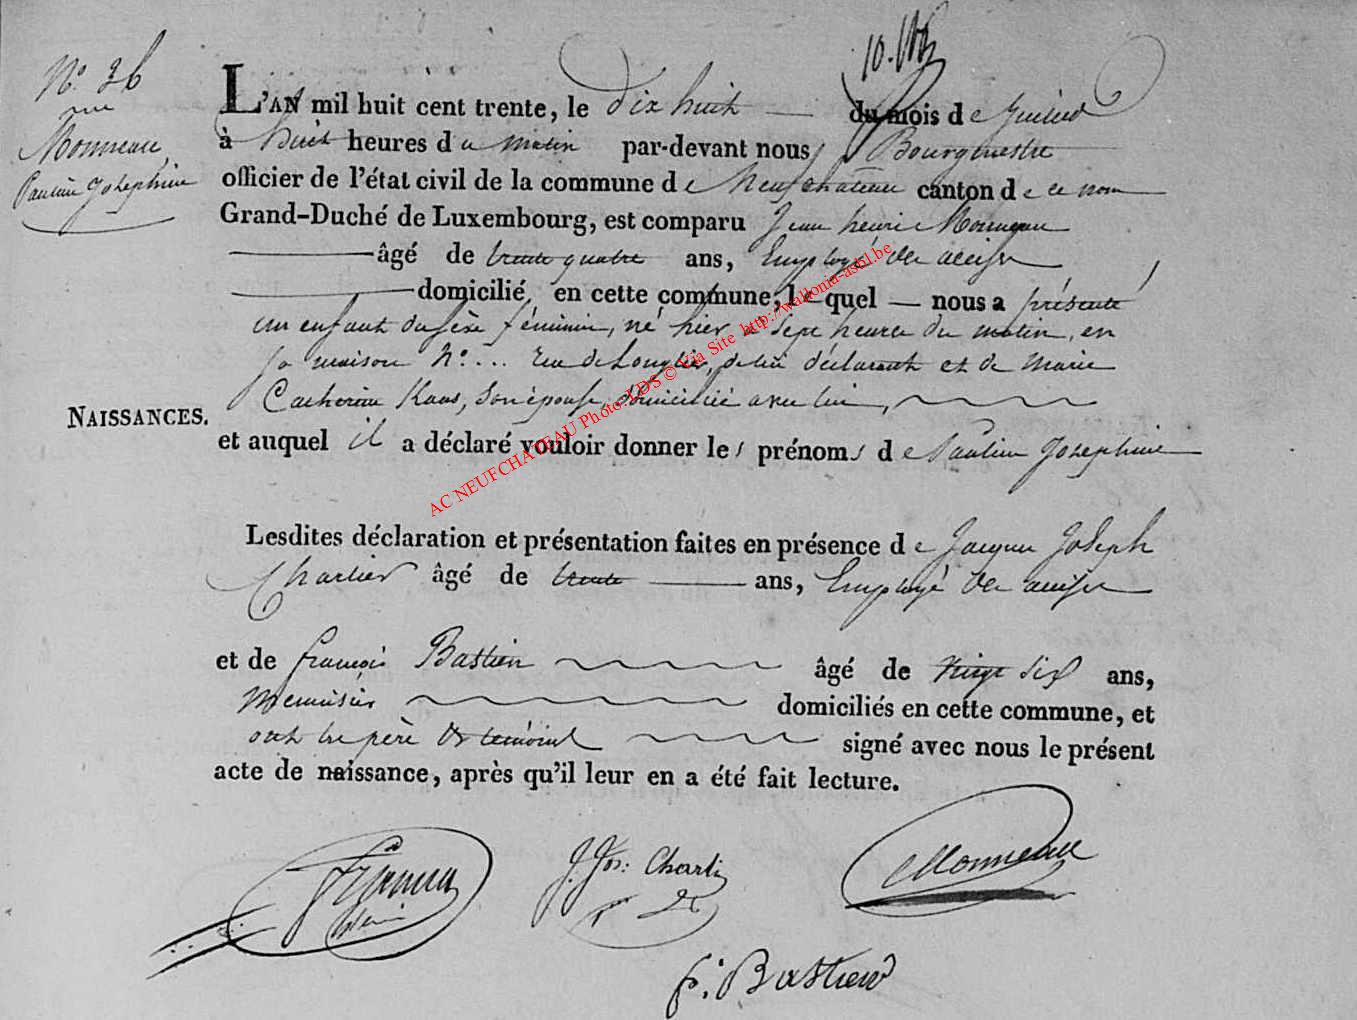 N.º 36
Monneau,
Pauline Josephine
L'AN mil huit cent trente, le Dix huit du mois de
à huit heures du matin par-devant nous Bourgmestre
officier de l'état civil de la commune de Neufchateau canton de ce nom
Grand-Duché de Luxembourg, est comparu Jean henri Monneau
âgé de trente quatre ans, Employé des accises
domicilié en cette commune, lequel nous a présenté
un enfant du sexe féminin, né hier à sept heures du matin, en
sa maison N.º ... rue de Longlier, de lui déclarant et de Marie
Catherine Kaus, son épouse, domiciliée avec lui,
NAISSANCES.
et auquel il a déclaré vouloir donner les prénoms de Pauline Josephine
Lesdites déclaration et présentation faites en présence de Jacques Joseph
Charlier âgé de trente ans, Employé des accises
et de françois Bastien âgé de vingt six ans,
Menuisier domiciliés en cette commune, et
ont les père et témoins signé avec nous le présent
acte de naissance, après qu'il leur en a été fait lecture.
J. Jos: Charli
Monneau
f: Bastien
AC NEUFCHATEAU Photo: LDS © Via Site http://wallonia-asbl.be